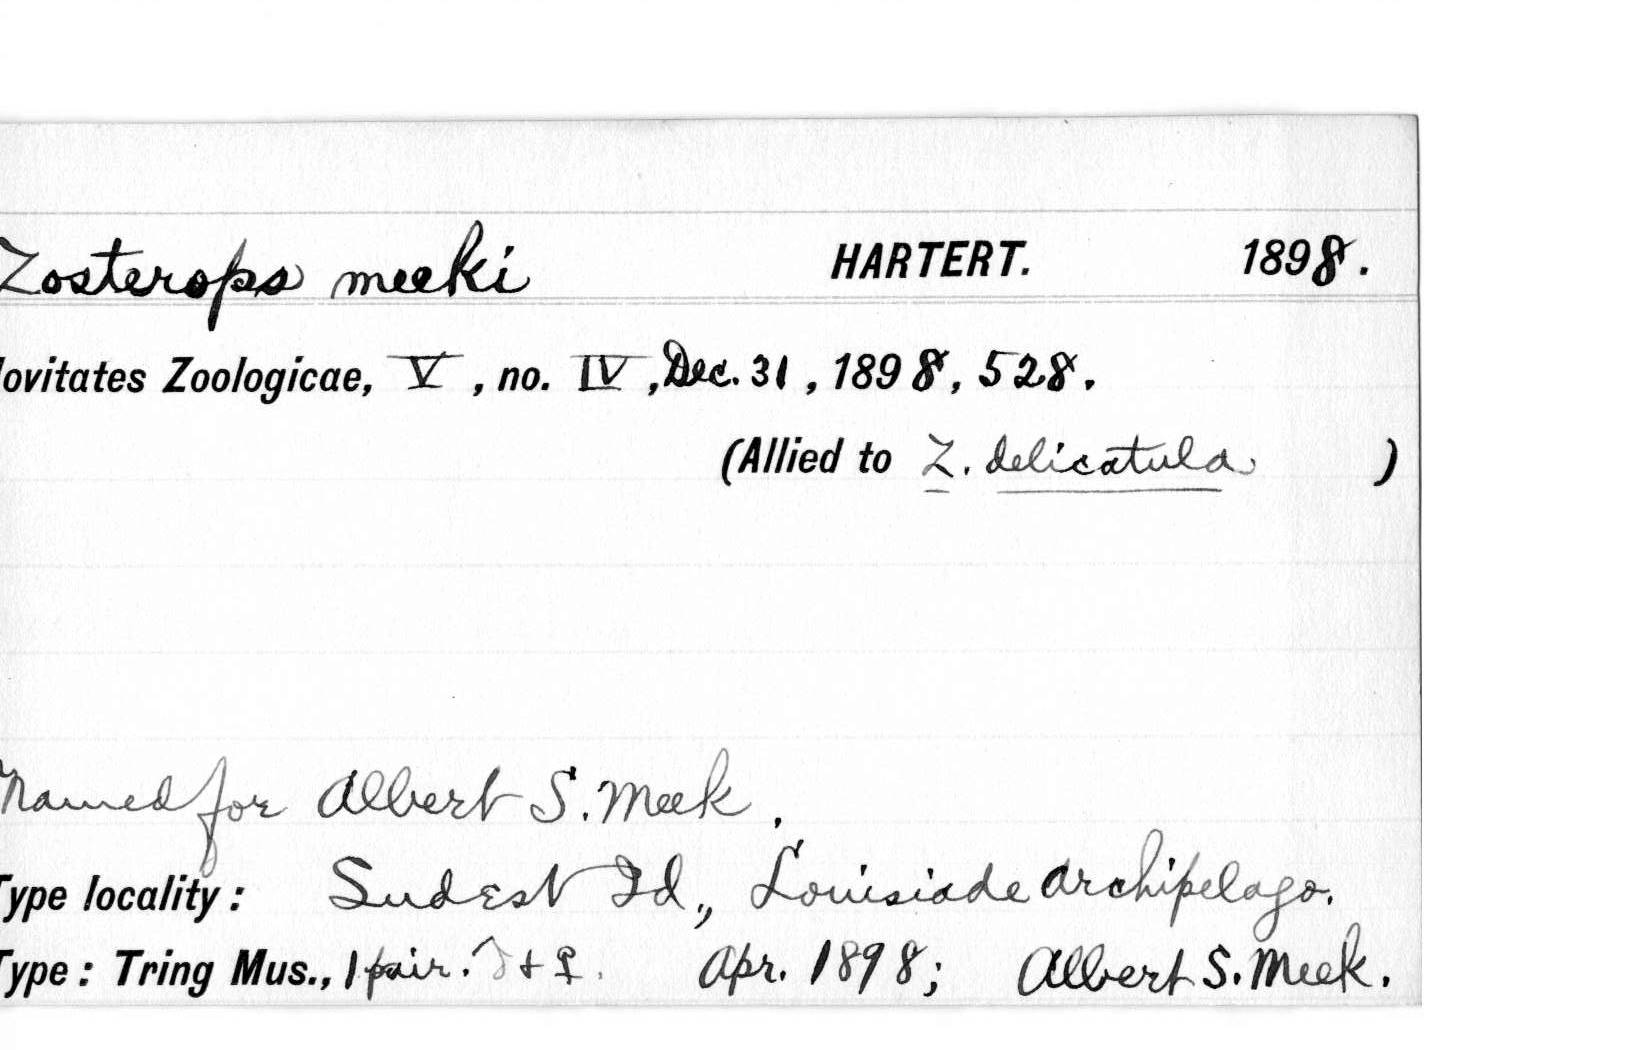 Zosterops meeki HARTERT. 1898.
ovitates Zoologicae, V, no. IV, Dec. 31, 1898, 528.
(Allied to Z. delicatula )
Named for Albert S. Meek.
Type locality: Sudest Id., Louisiade Archipelago.
Type: Tring Mus., 1 pair. ♂ + ♀. Apr. 1898; Albert S. Meek.